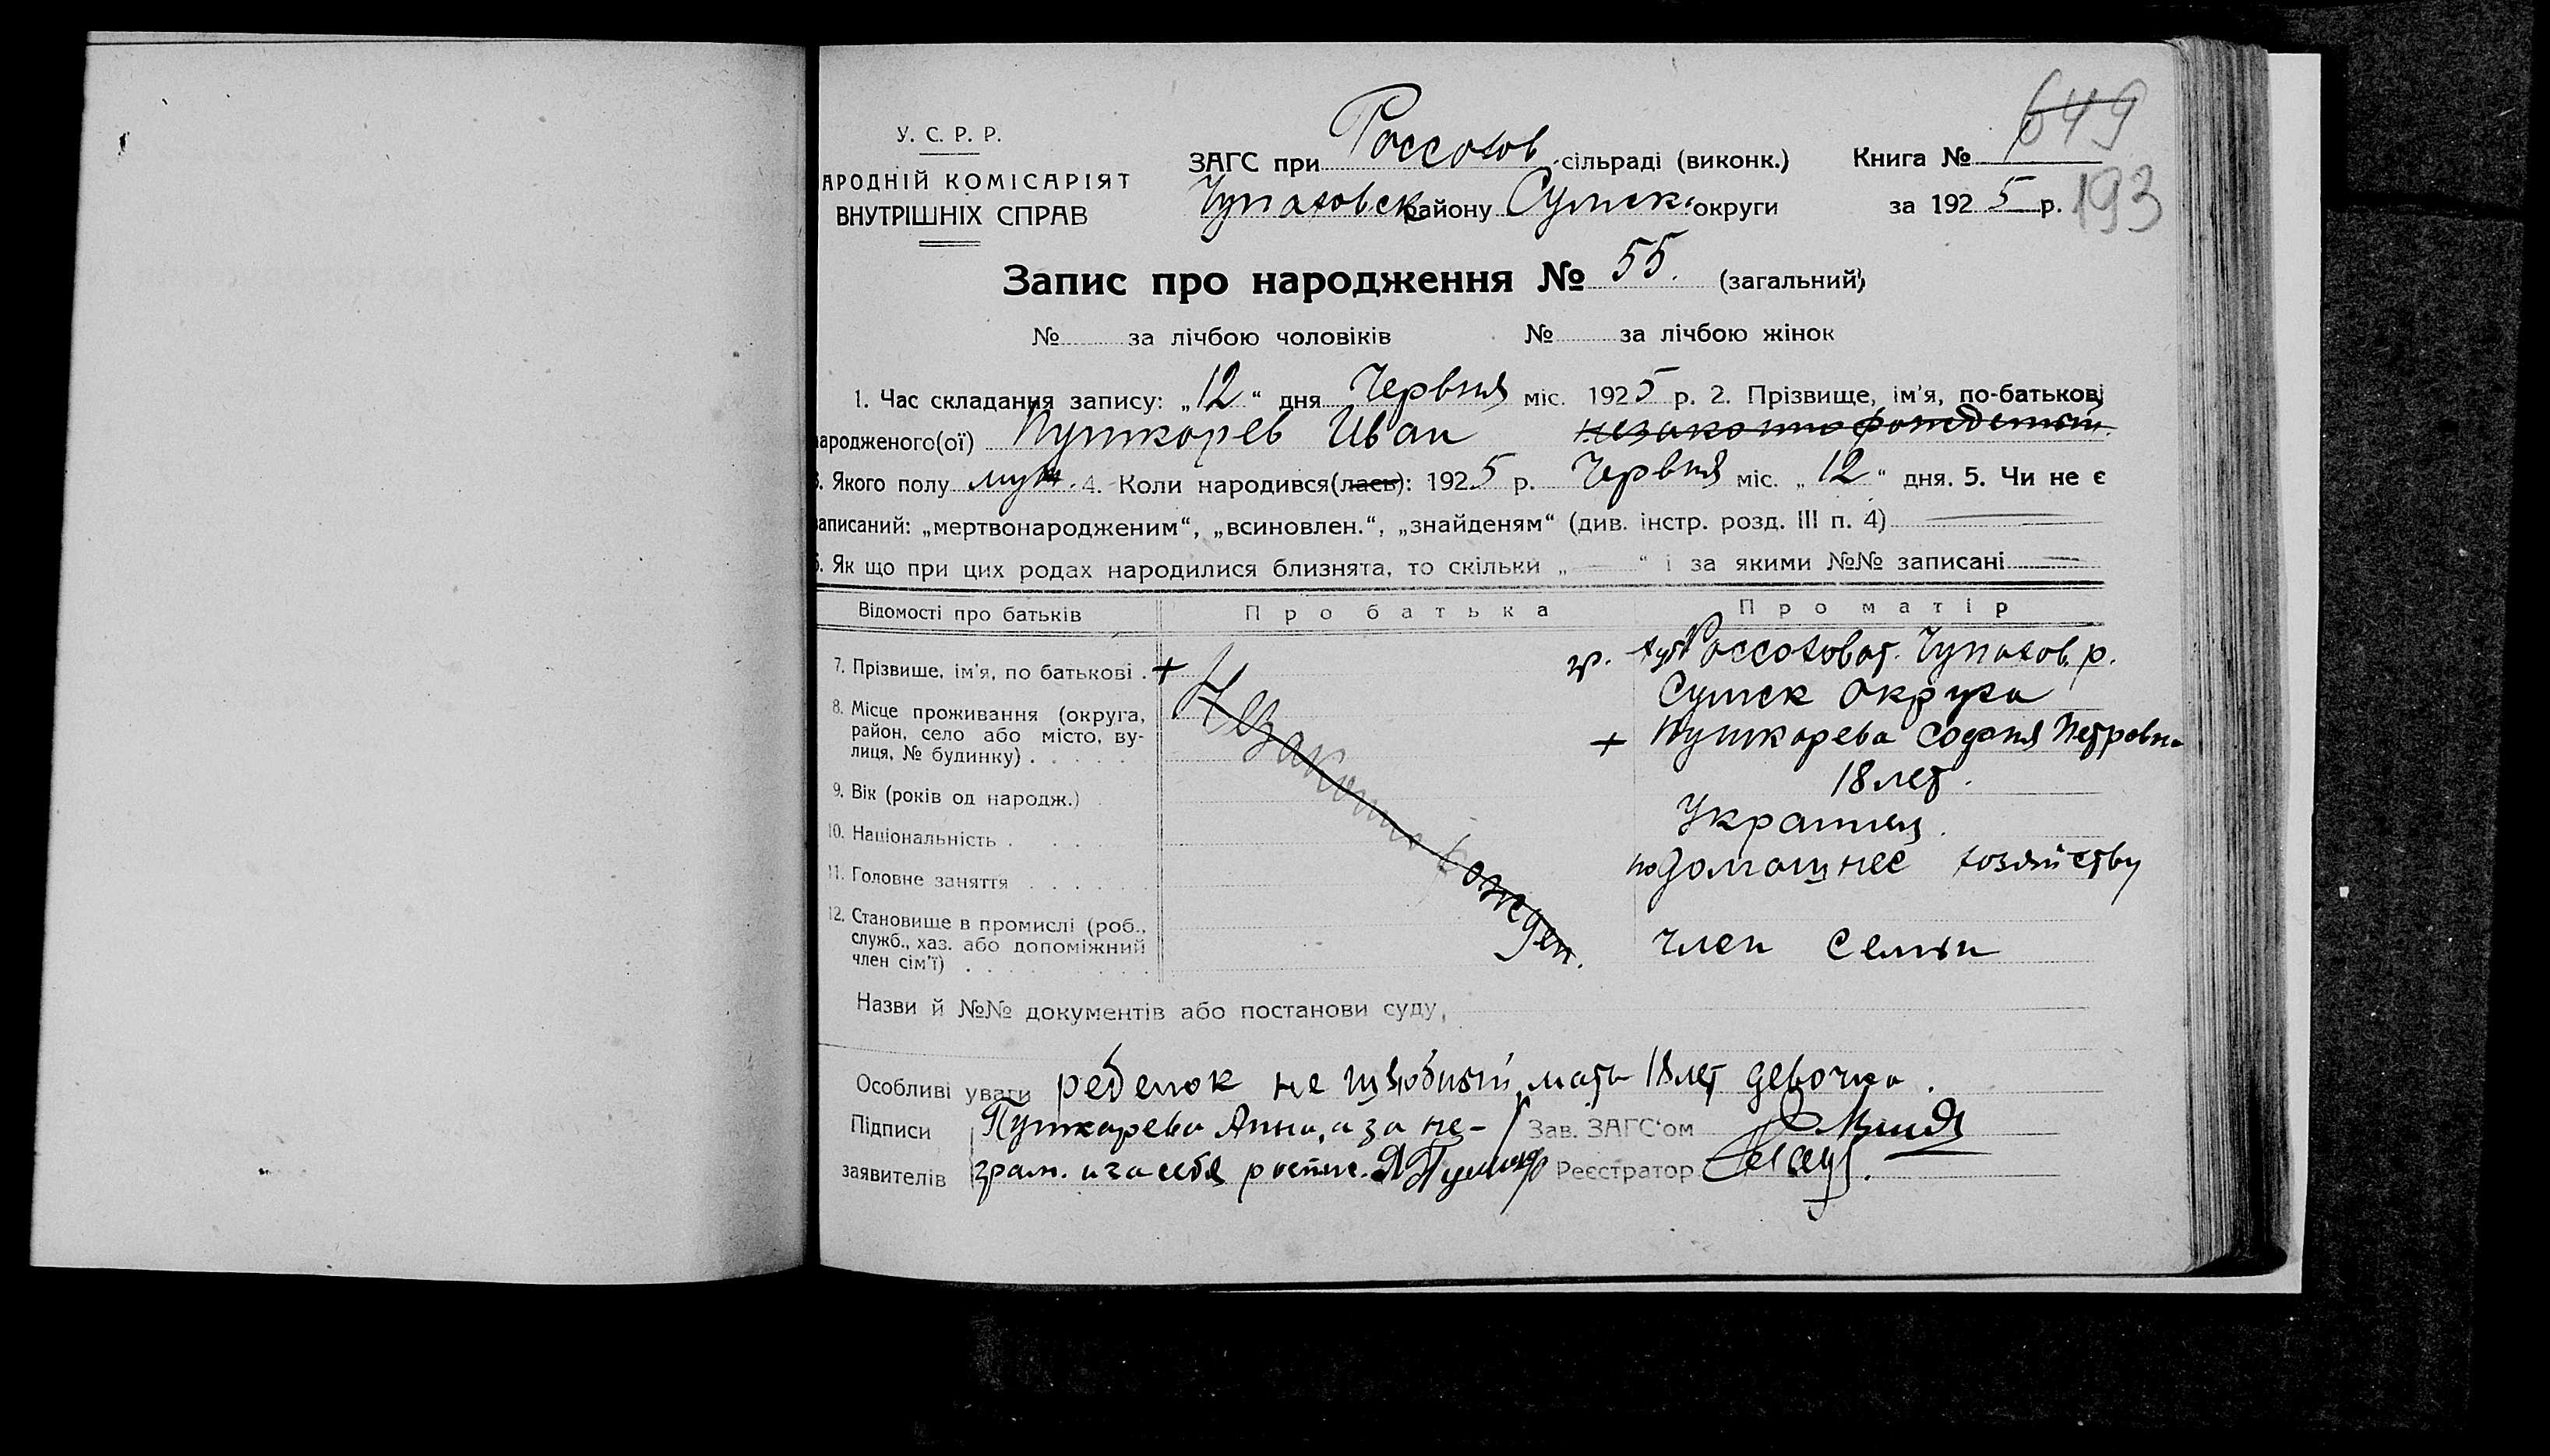 649
193
У. С. Р. Р.
АРОДНІЙ КОМІСАРІЯТ
ВНУТРІШНІХ СПРАВ
ЗАГС при Россохов. сільраді (виконк.) Книга №
Чупаховск району Сумск. округи за 1925 р.
Запис про народження № 55. (загальний)
№ за лічбою чоловіків № за лічбою жінок
1. Час складання запису: „12“ дня Червня міс. 1925 р. 2. Прізвище, ім'я, по-батькові
ародженого(ої) Пушкарев Иван незаконнорожденный
3. Якого полу муж. 4. Коли народився(лась): 1925 р. Червня міс. „12“ дня. 5. Чи не є
записаний: „мертвонародженим“, „всиновлен.“, „знайденям“ (див. інстр. розд. III п. 4)
6. Як що при цих родах народилися близнята, то скільки „ “ і за якими №№ записані
Відомості про батьків Про батька Про матір
7. Прізвище, ім'я, по батькові . +
8. Місце проживання (округа,
район, село або місто, ву-
лиця, № будинку) . . . . .
9. Вік (років од народж.)
10. Національність . . . . .
11. Головне заняття . . . . . .
12. Становище в промислі (роб.,
служб., хаз. або допоміжний
член сім'ї) . . . . . . . .
Незаконно рожден.
гр. хут Россоховат. Чупахов. р.
Сумск округа
+ Пушкарева Софья Петровна
18 лет.
Украинец.
по домашнее хозяйству
член семьи
Назви й №№ документів або постанови суду,
Особливі уваги ребенок не мать 18 лет девочка.
Підписи Пушкарева Анна, а за не- Зав. ЗАГС'ом
заявителів грам. и за себя роспис. Реєстратор